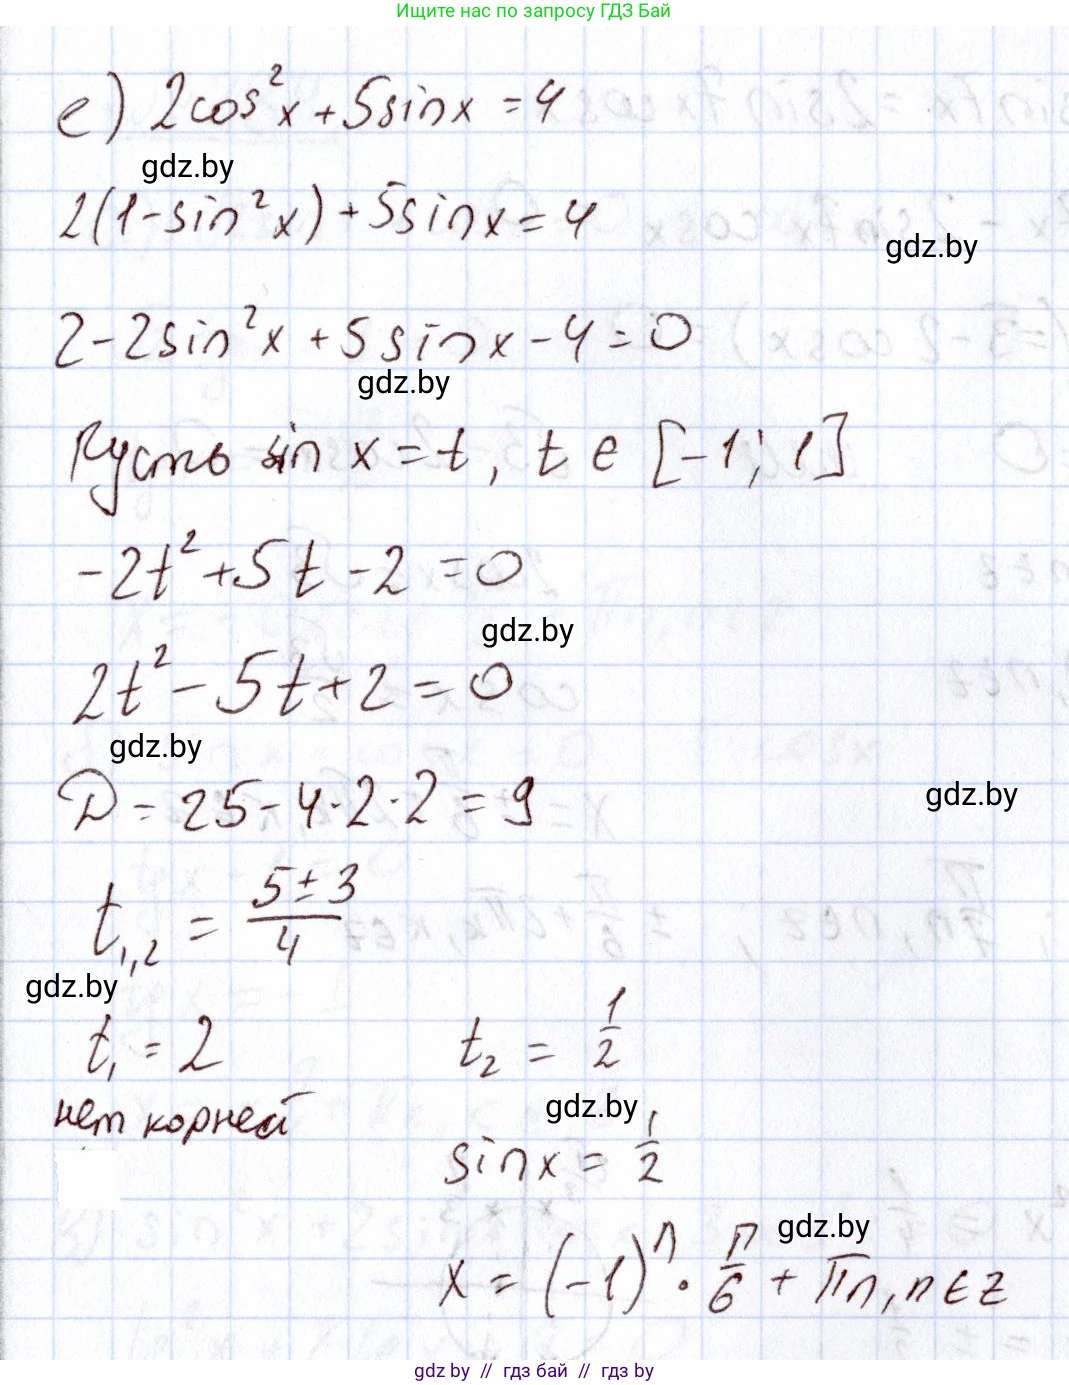 Ищите нас по запросу ГДЗ Бай
е) 2cos²x + 5sinx = 4
gdz.by
2(1-sin²x) + 5sinx = 4
gdz.by
2-2sin²x + 5sinx - 4 = 0
gdz.by
Пусть sin x = t, t ∈ [-1; 1]
-2t² + 5t - 2 = 0
gdz.by
2t² - 5t + 2 = 0
gdz.by
D = 25 - 4·2·2 = 9
gdz.by
t₁,₂ = (5±3)/4
gdz.by
t₁ = 2 t₂ = 1/2
нет корней
gdz.by
sinx = 1/2
gdz.by
x = (-1)ⁿ · π/6 + πn, n ∈ Z
gdz.by // гдз бай // гдз by